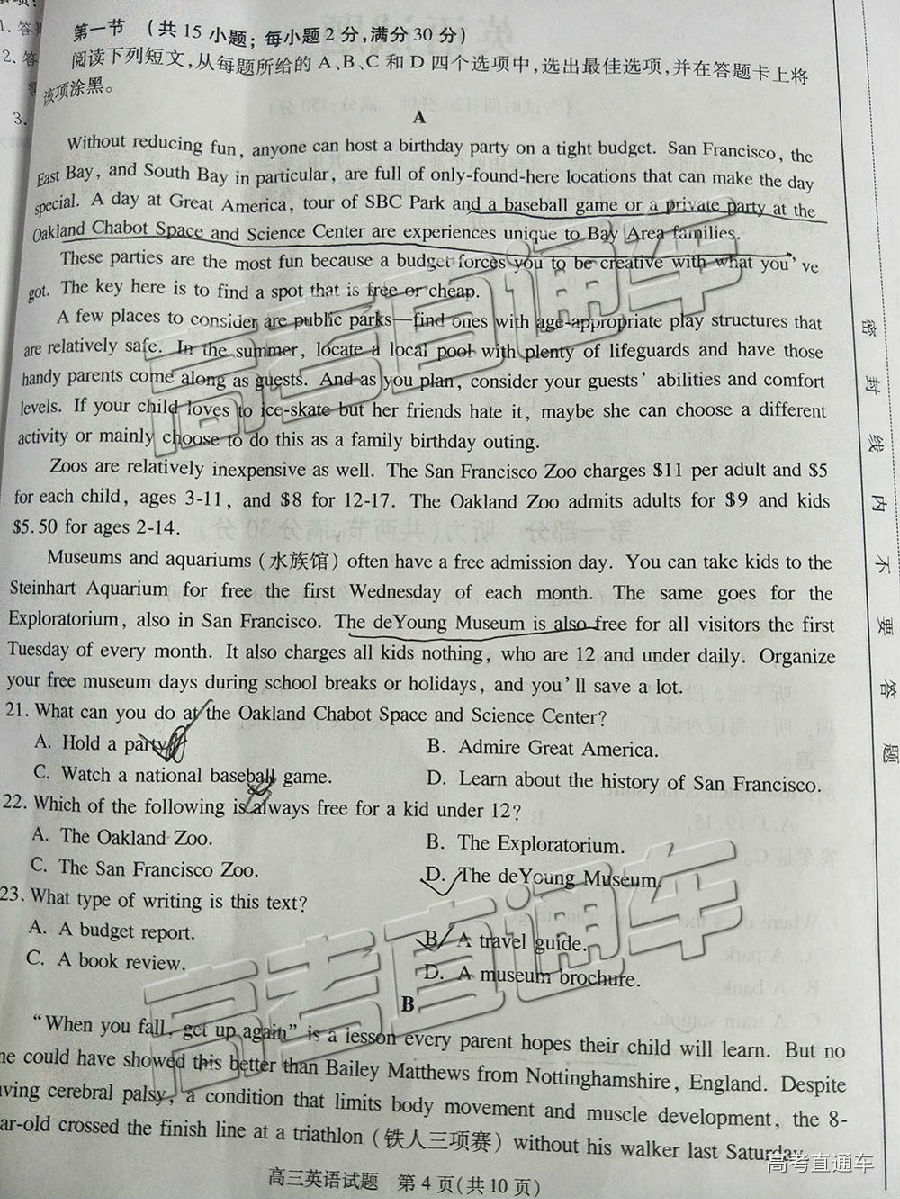 第一节 (共15小题；每小题2分，满分30分)
阅读下列短文，从每题所给的A、B、C和D四个选项中，选出最佳选项，并在答题卡上将
该项涂黑。
A
Without reducing fun, anyone can host a birthday party on a tight budget. San Francisco, the
East Bay, and South Bay in particular, are full of only-found-here locations that can make the day
special. A day at Great America, tour of SBC Park and a baseball game or a private party at the
Oakland Chabot Space and Science Center are experiences unique to Bay Area families.
These parties are the most fun because a budget forces you to be creative with what you've
got. The key here is to find a spot that is free or cheap.
A few places to consider are public parks—find ones with age-appropriate play structures that
are relatively safe. In the summer, locate a local pool with plenty of lifeguards and have those
handy parents come along as guests. And as you plan, consider your guests' abilities and comfort
levels. If your child loves to ice-skate but her friends hate it, maybe she can choose a different
activity or mainly choose to do this as a family birthday outing.
Zoos are relatively inexpensive as well. The San Francisco Zoo charges $11 per adult and $5
for each child, ages 3-11, and $8 for 12-17. The Oakland Zoo admits adults for $9 and kids
$5.50 for ages 2-14.
Museums and aquariums (水族馆) often have a free admission day. You can take kids to the
Steinhart Aquarium for free the first Wednesday of each month. The same goes for the
Exploratorium, also in San Francisco. The deYoung Museum is also free for all visitors the first
Tuesday of every month. It also charges all kids nothing, who are 12 and under daily. Organize
your free museum days during school breaks or holidays, and you'll save a lot.
21. What can you do at the Oakland Chabot Space and Science Center?
A. Hold a party.
B. Admire Great America.
C. Watch a national baseball game.
D. Learn about the history of San Francisco.
22. Which of the following is always free for a kid under 12?
A. The Oakland Zoo.
B. The Exploratorium.
C. The San Francisco Zoo.
D. The deYoung Museum.
23. What type of writing is this text?
A. A budget report.
B. A travel guide.
C. A book review.
D. A museum brochure.
B
"When you fall, get up again" is a lesson every parent hopes their child will learn. But no
could have showed this better than Bailey Matthews from Nottinghamshire, England. Despite
cerebral palsy, a condition that limits body movement and muscle development, the 8-
crossed the finish line at a triathlon (铁人三项赛) without his walker last Saturday.
高三英语试题 第4页(共10页)
密 封 线 内 不 要 答 题
高考直通车
高考直通车
高考直通车